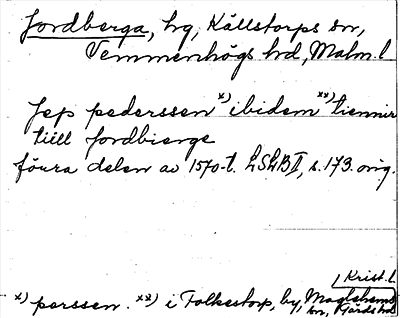 Jordberga, hg, Källstorps sn,
Vemmenhögs hd, Malm. l
Jep pederssen x) ibidem xx) tienner
tiill Jordbierge
förra delen av 1570-t. LSLB II, s. 173. orig.
Krist. l.
x) perssen. xx) i Folkestorp, by, Maglehems
sn, Gärds hd